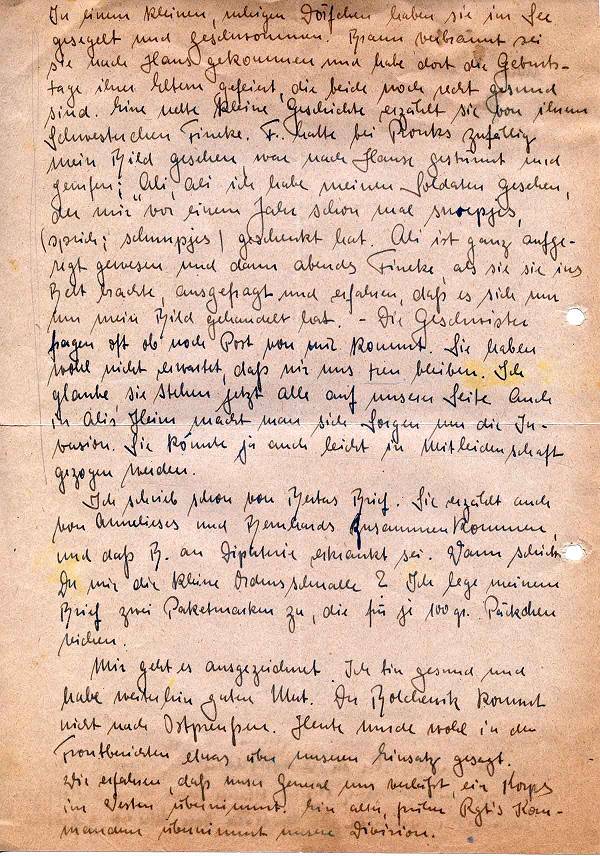 In einem kleinen, ruhigen Dörfchen haben sie im See
gesegelt und geschwommen. Braun verbrannt sei
sie nach Haus gekommen und habe dort die Geburts-
tage ihrer Eltern gefeiert, die beide noch recht gesund
sind. Eine nette kleine Geschichte erzählt sie von ihrem
Schwesterchen Fineke. F. hatte bei Pronks zufällig
mein Bild gesehen, war nach Hause gestürmt und
gerufen: Ali, Ali ich habe meinen Soldaten gesehen,
der mir vor einem Jahr schon mal snoepjes,
(sprich: schnupjes) geschenkt hat. Ali ist ganz aufge-
regt gewesen und dann abends Fineke, als sie sie ins
Bett brachte, ausgefragt und erfahren, daß es sich um
um mein Bild gehandelt hat. - Die Geschwister
fragen oft ob noch Post von mir kommt. Sie haben
wohl nicht erwartet, daß wir uns treu bleiben. Ich
glaube, sie stehen jetzt alle auf unserer Seite. Auch
in Alis Heim macht man sich Sorgen um die In-
vasion. Sie könnte ja auch leicht in Mitleidenschaft
gezogen werden.
Ich schrieb schon von Bertas Brief. Sie erzählt auch
von Annelieses und Bernhards Zusammenkommen,
und daß B. an Diphterie erkrankt sei. Wann schickst
Du mir die kleine Ordensschnalle? Ich lege meinem
Brief zwei Paketmarken zu, die für je 100 gr. Päckchen
reichen.
Mir geht es ausgezeichnet. Ich bin gesund und
habe weiterhin guten Mut. Der Bolschewik kommt
nicht nach Ostpreußen. Heute wurde wohl in den
Frontberichten etwas über unseren Einsatz gesagt.
Wir erfahren, daß unser General uns verläßt, ein Korps
im Westen übernimmt. Ein alter, früher Rgt's Kom-
mandeur übernimmt unsere Division.